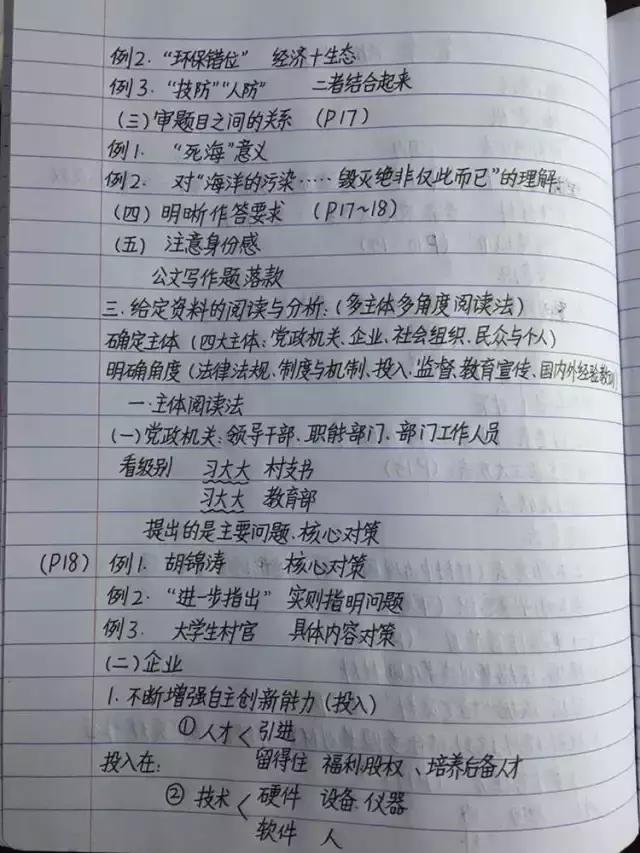 例2. “环保错位” 经济十生态
例3. “技防”“人防” 二者结合起来
(三)审题目之间的关系 (P17)
例1. “死海”意义
例2. 对“海洋的污染……毁灭绝非仅此而已”的理解.
(四)明晰作答要求 (P17~18)
(五) 注意身份感
公文写作题 落款
三. 给定资料的阅读与分析:(多主体多角度阅读法)
确定主体 (四大主体:党政机关、企业、社会组织、民众与个人)
明确角度 (法律法规、制度与机制、投入、监督、教育宣传、国内外经验教训
一.主体阅读法
(一)党政机关:领导干部、职能部门、部门工作人员
看级别 习大大 村支书
习大大 教育部
提出的是主要问题.核心对策
(P18) 例1. 胡锦涛 核心对策
例2. “进一步指出” 实则指明问题
例3. 大学生村官 具体内容对策
(二)企业
1.不断增强自主创新能力(投入)
①人才<引进
投入在: 留得住 福利.股权、培养后备人才
②技术<硬件 设备.仪器
软件 人